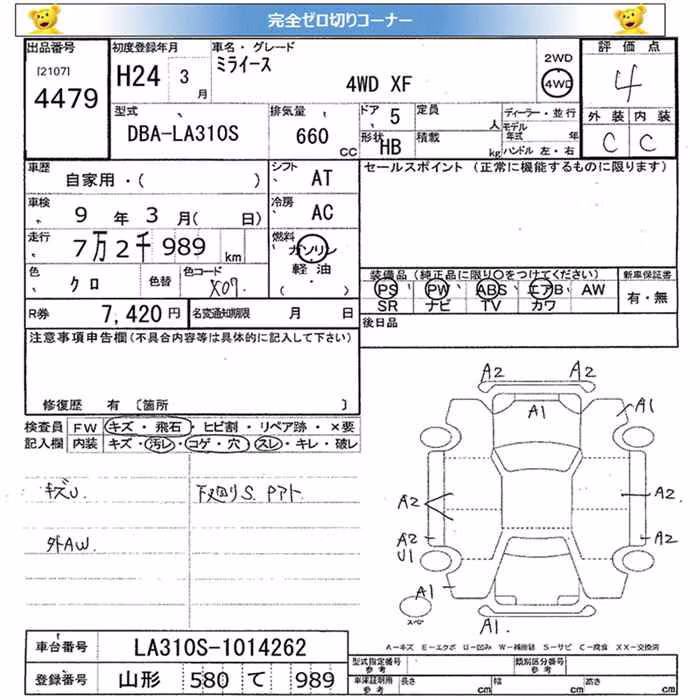 完全ゼロ切りコーナー
出品番号
[2107]
4479
初度登録年月
H24 3
月
車名・グレード
ミライース
4WD XF
2WD
4WD
評価点
4
型式
DBA-LA310S
排気量
660
CC
ドア 5
形状 HB
定員
人
積載
kg
ディーラー・並行
モデル年式 年
ハンドル 左・右
外装 内装
C C
車歴
自家用・( )
シフト
AT
セールスポイント (正常に機能するものに限ります)
車検
9 年 3 月( 日)
冷房
AC
走行
7万2千989 km
燃料
ガソリン
軽油
( ・ )
色
クロ
色替
色コード
X07
装備品(純正品に限り○をつけてください)
PS PW ABS エアB AW
SR ナビ TV カワ
新車保証書
有・無
R券 7,420 円
名変通知期限 月 日
後日品
注意事項申告欄(不具合内容等は具体的に記入して下さい)
修復歴 有 〔箇所 〕
検査員
記入欄
FW キズ・飛石・ヒビ割・リペア跡・×要
内装 キズ・汚レ・コゲ・穴・スレ・キレ・破レ
キズU
下廻りS. Pアト
外AW.
A2 A2
A1 A1
A2 A2
A2 A2
U1
A1
A1.
スペア
A-キズ E-エクボ U-凹み W-補修跡 S-サビ C-腐食 XX-交換済
車台番号 LA310S-1014262
登録番号 山形 580 て 989
型式指定番号
参考
類別区分番号
参考
車庫証明用
参考
長さ cm
幅 cm
高さ cm